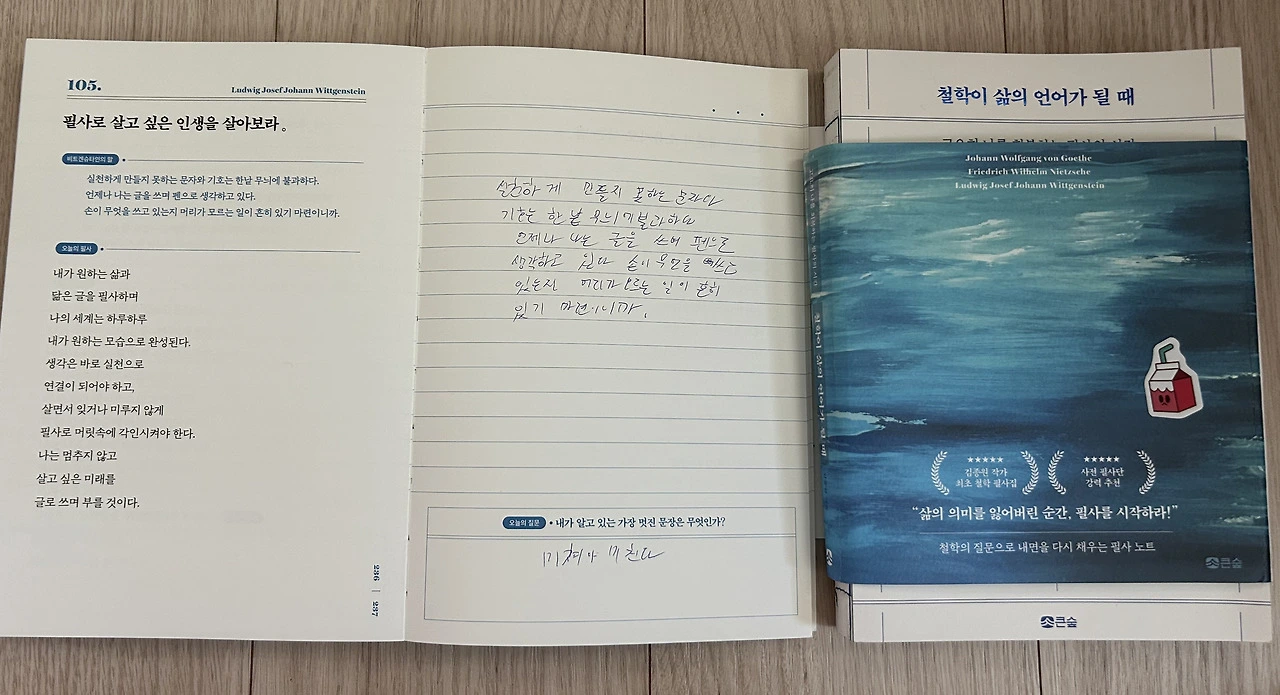 105.
Ludwig Josef Johann Wittgenstein
필사로 살고 싶은 인생을 살아보라。
비트겐슈타인의 말
실천하게 만들지 못하는 문자와 기호는 한낱 무늬에 불과하다.
언제나 나는 글을 쓰며 펜으로 생각하고 있다.
손이 무엇을 쓰고 있는지 머리가 모르는 일이 흔히 있기 마련이니까.
오늘의 필사
내가 원하는 삶과
닮은 글을 필사하며
나의 세계는 하루하루
내가 원하는 모습으로 완성된다.
생각은 바로 실천으로
연결이 되어야 하고,
살면서 잊거나 미루지 않게
필사로 머릿속에 각인시켜야 한다.
나는 멈추지 않고
살고 싶은 미래를
글로 쓰며 부를 것이다.
236 | 237
실천하게 만들지 못하는
기호는 한낱 무늬에 불과하다
언제나 나는 글을 쓰며 펜으로
생각하고 있다 손이 무엇을
있는지 머리가 모르는 일이 흔히
있기 마련이니까.
오늘의 질문 • 내가 알고 있는 가장 멋진 문장은 무엇인가?
미쳐야 미친다
철학이 삶의 언어가 될 때
Johann Wolfgang von Goethe
Friedrich Wilhelm Nietzsche
Ludwig Josef Johann Wittgenstein
철학이 삶의 언어가 될 때
김종원 작가
최초 철학 필사집
사전 필사단
강력 추천
“삶의 의미를 잃어버린 순간, 필사를 시작하라!”
철학의 질문으로 내면을 다시 채우는 필사 노트
큰숲
큰숲